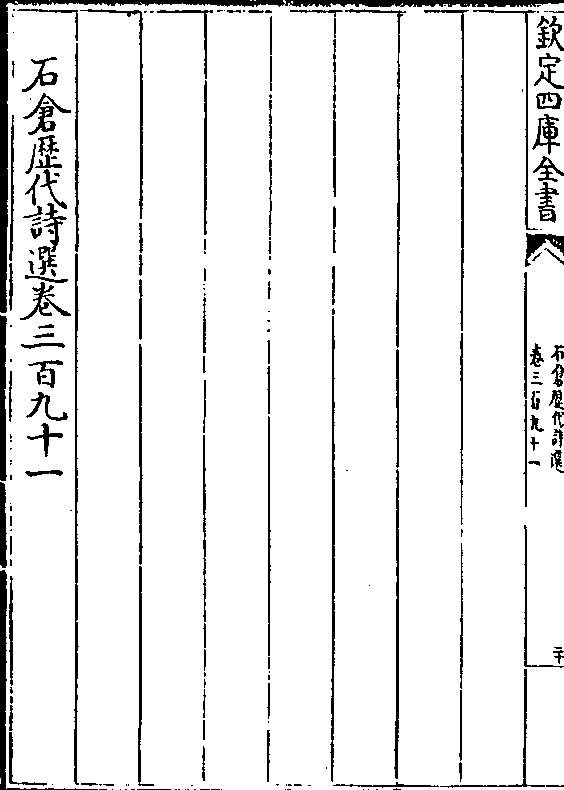 欽定四庫全書
石倉歴代詩選
卷三百九十一
二十
石倉歴代詩選卷三百九十一